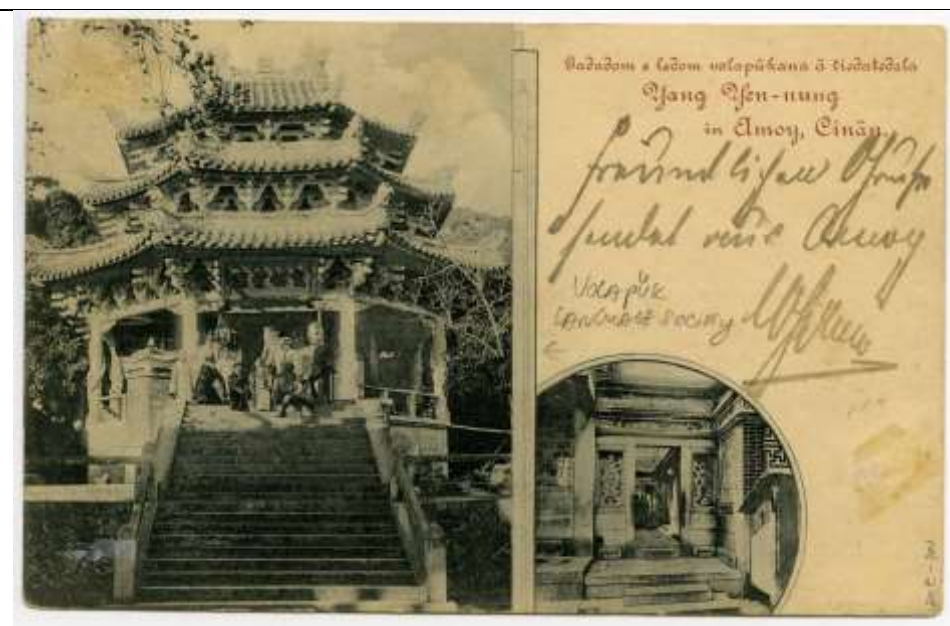 Gadadom e ledom volapükana ä tiedatedala
Yang Yen-nung
in Amoy, Cinän.
freundlichen Gruß
sendet aus Amoy
VOLAPÜK
LANGUAGE SOCIETY
←